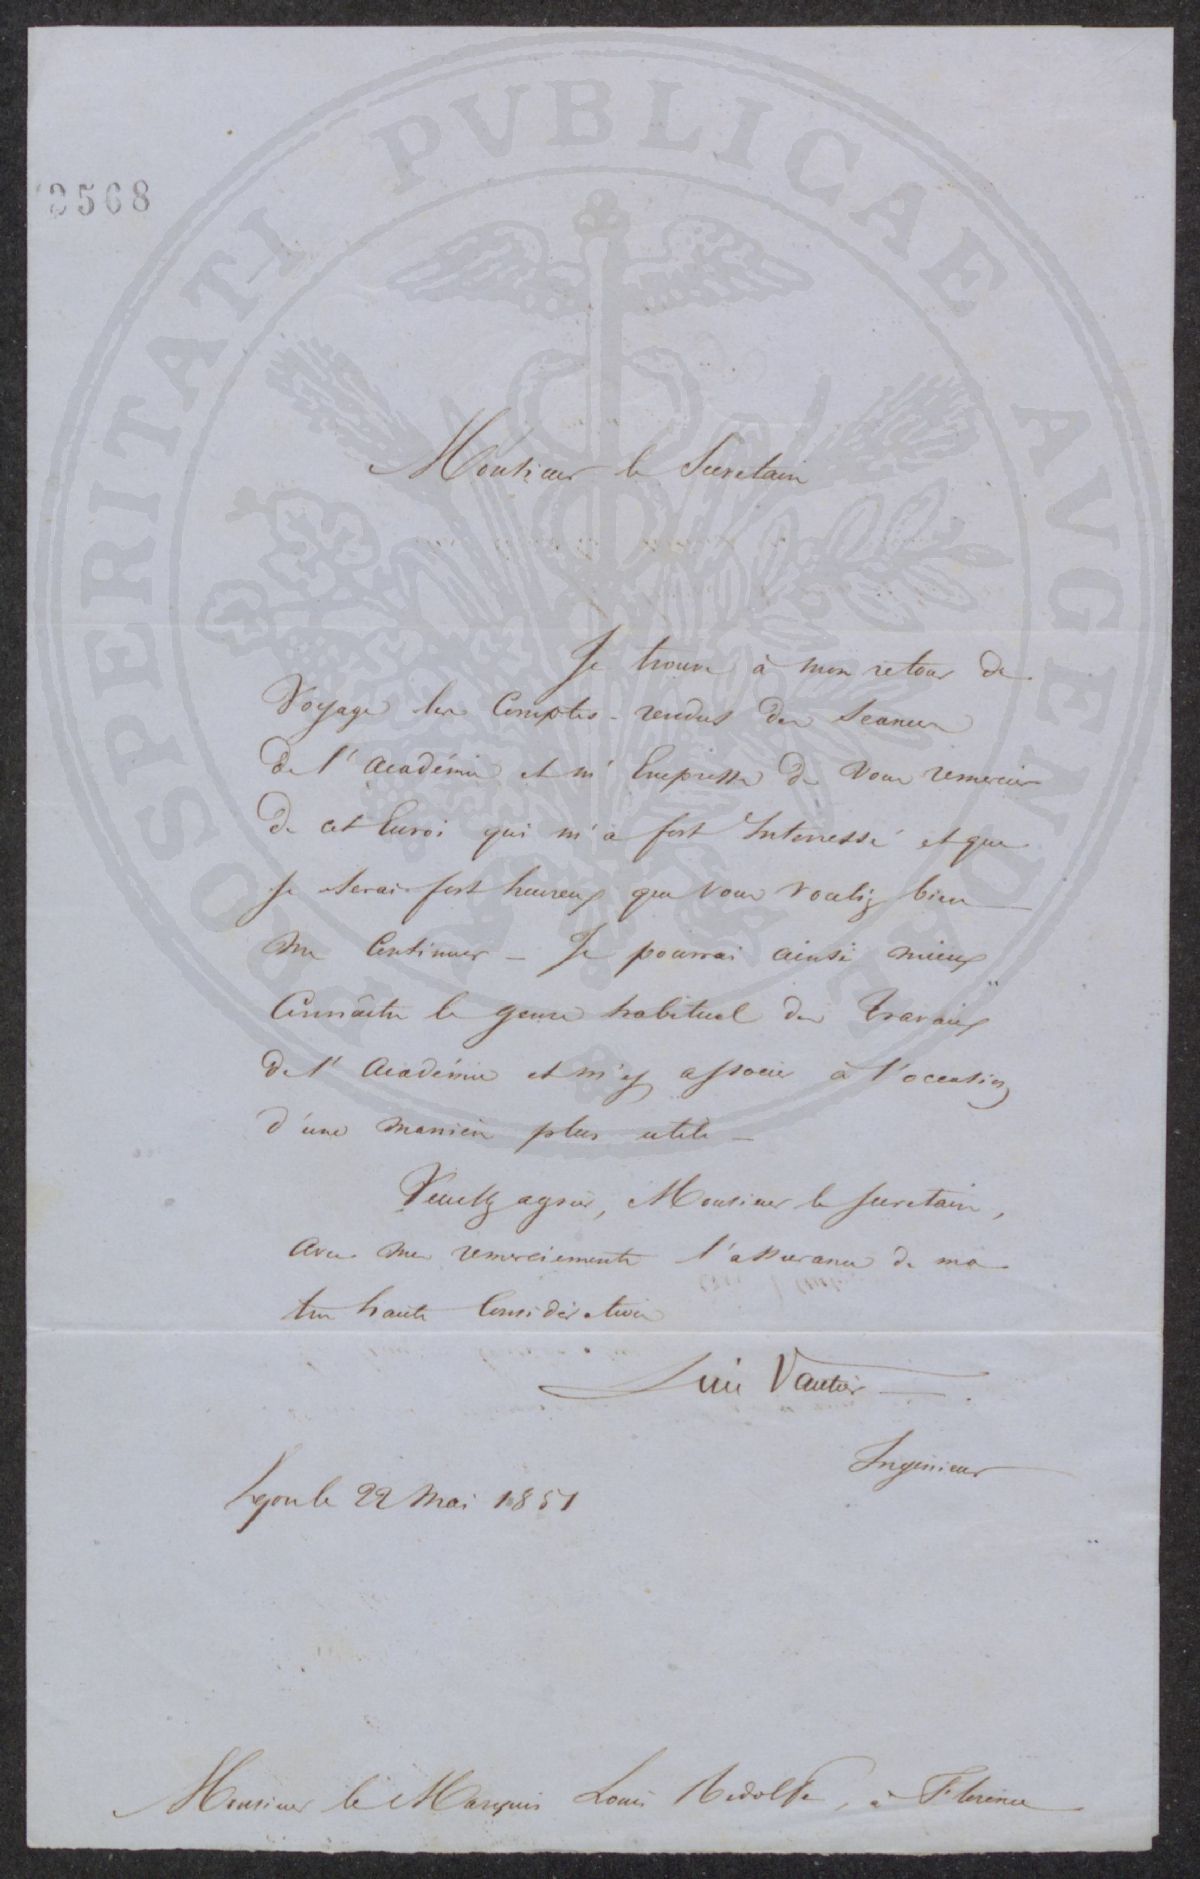 2568
PROSPERITATI PVBLICAE AVGENDAE
Monsieur le Secretaire
Je trouve à mon retour de
Voyage les Comptes-rendus des Seances
de l'Académie et m'Empresse de vous remercier
de cet Envoi qui m'a fort Interressé et que
Je serais fort heureux que vous vouliez bien
me Continuer - Je pourrai ainsi mieux
Connaître le genre habituel des Travaux
de l'Académie et m'y associer à l'occasion
d'une maniere plus utile -
Veuillez agréer, Monsieur le Secretaire,
avec mes remerciements l'assurance de ma
tres haute Considération
Vautier
Ingenieur
Lyon le 22 Mai 1851
Monsieur le Marquis Louis Ridolfi, à Florence